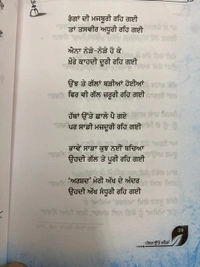 ਰੰਗਾਂ ਦੀ ਮਜਬੂਰੀ ਰਹਿ ਗਈ
ਤਾਂ ਤਸਵੀਰ ਅਧੂਰੀ ਰਹਿ ਗਈ
ਐਨਾ ਨੇੜੇ-ਨੇੜੇ ਹੋ ਕੇ
ਖ਼ੌਰੇ ਕਾਹਦੀ ਦੂਰੀ ਰਹਿ ਗਈ
ਉਂਝ ਤੇ ਗੱਲਾਂ ਬੜੀਆਂ ਹੋਈਆਂ
ਫਿਰ ਵੀ ਗੱਲ ਜ਼ਰੂਰੀ ਰਹਿ ਗਈ
ਹੱਥਾਂ ਉੱਤੇ ਛਾਲੇ ਪੈ ਗਏ
ਪਰ ਸਾਡੀ ਮਜ਼ਦੂਰੀ ਰਹਿ ਗਈ
ਭਾਵੇਂ ਸਾਡਾ ਕੁਝ ਨਈਂ ਬਚਿਆ
ਉਹਦੀ ਗੱਲ ਤੇ ਪੂਰੀ ਰਹਿ ਗਈ
'ਅਰਸ਼ਦ' ਮੇਰੀ ਅੱਖ ਦੇ ਅੰਦਰ
ਉਹਦੀ ਅੱਖ ਸੰਧੂਰੀ ਰਹਿ ਗਈ